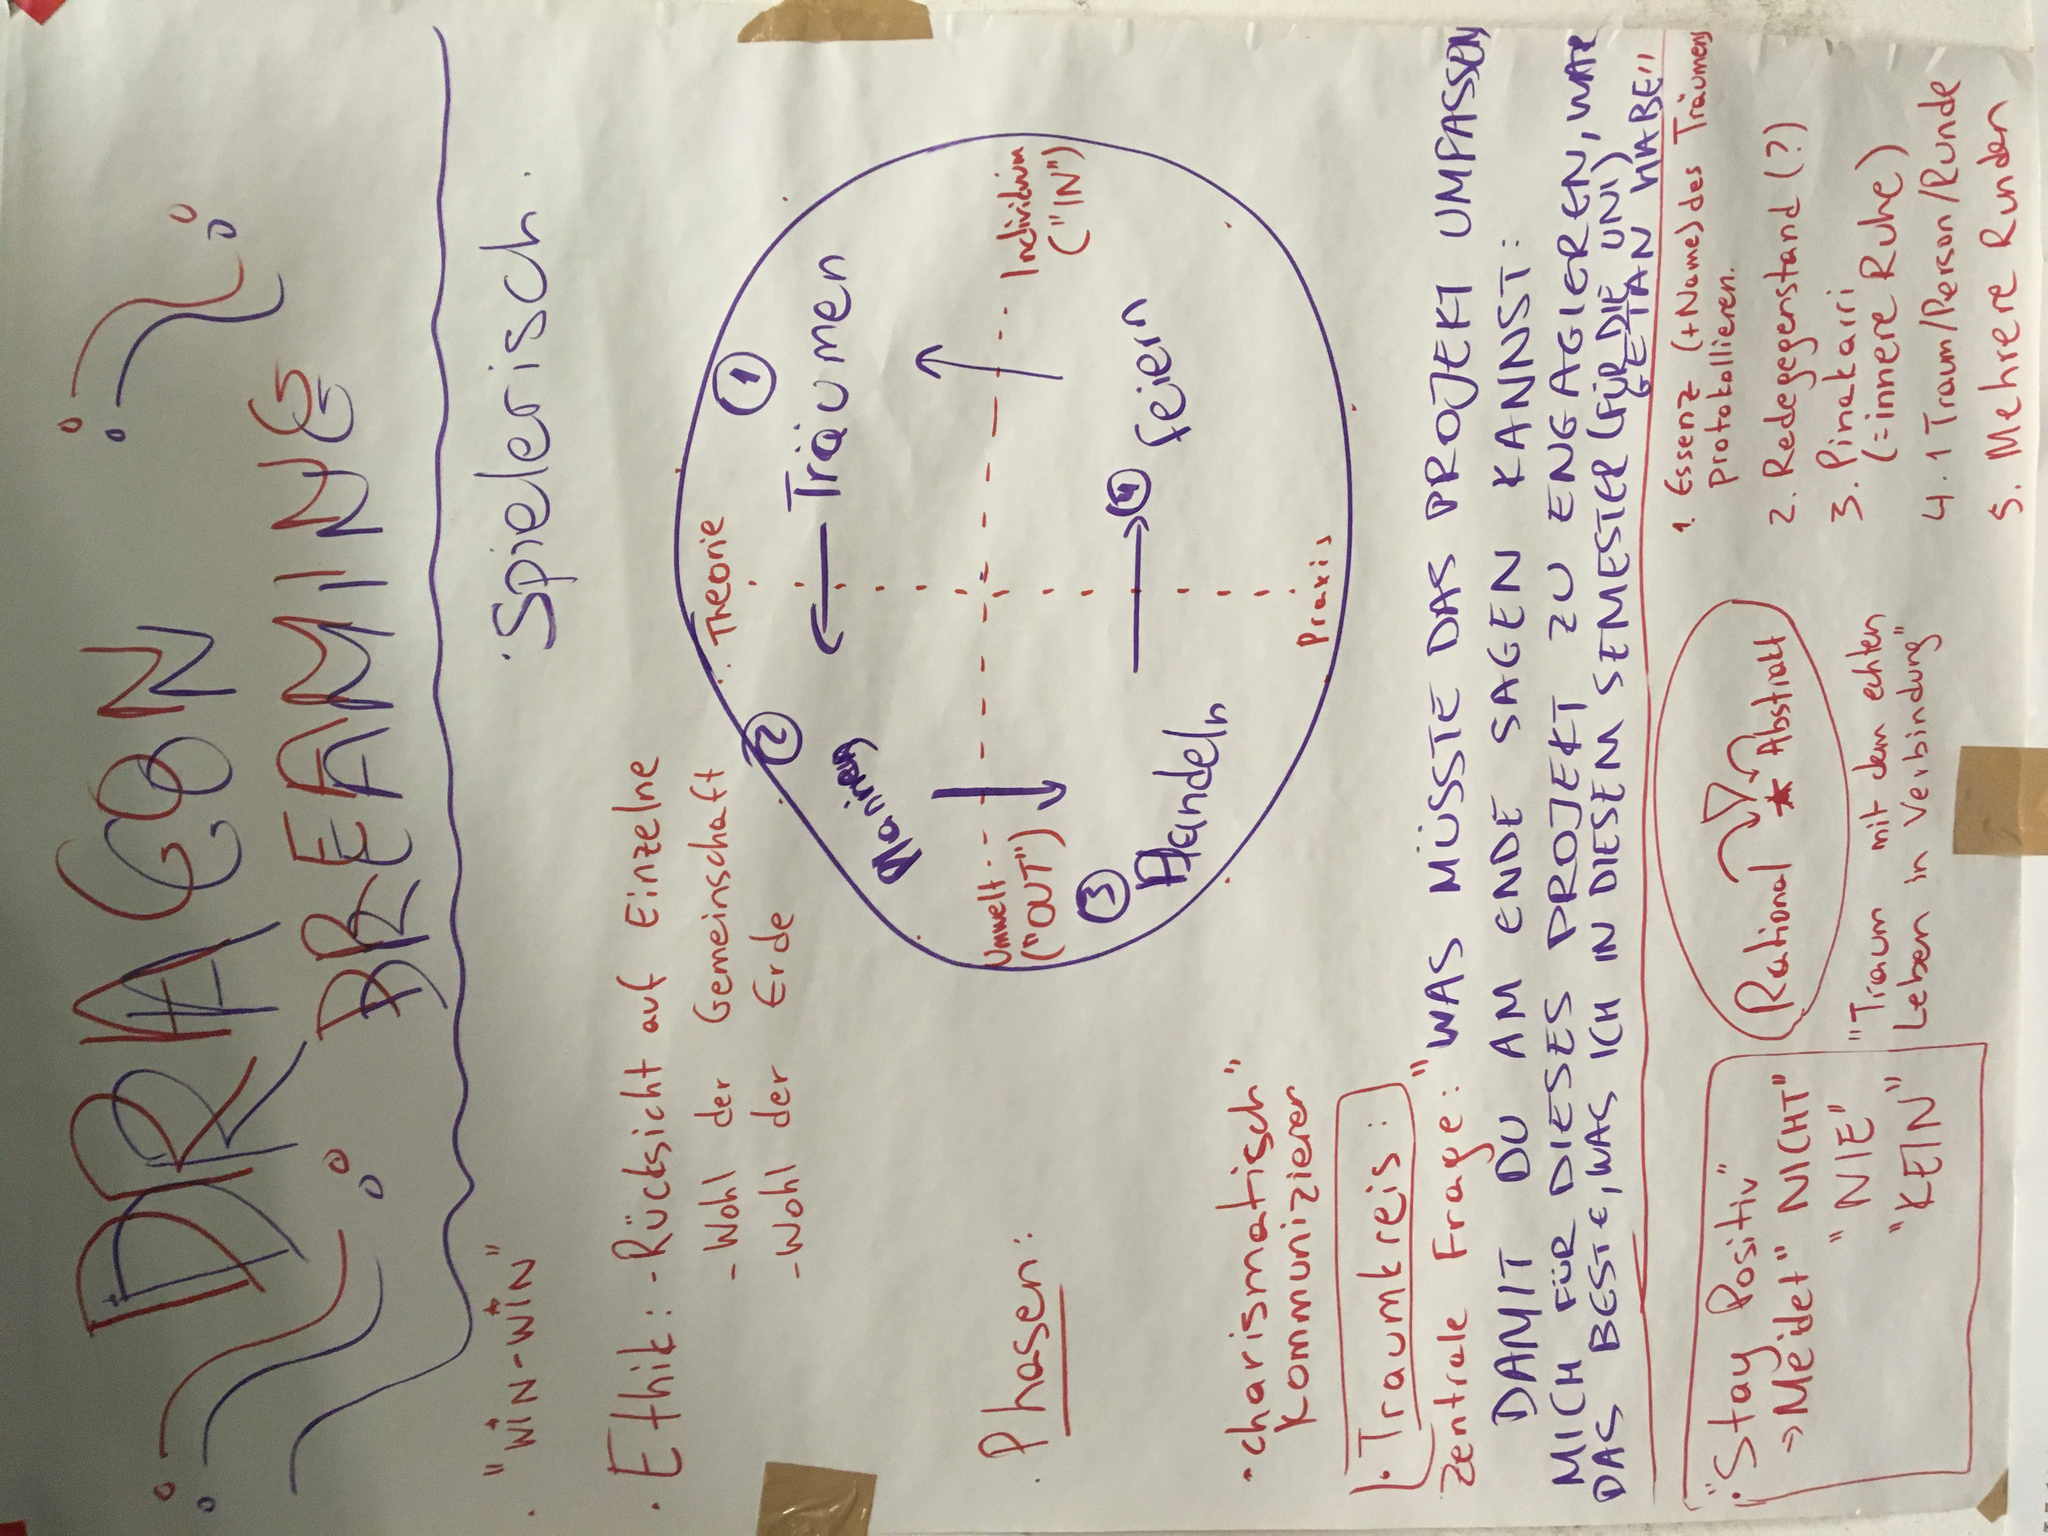 DRAGON
DREAMING
· "WIN-WIN"
· Spielerisch.
· Ethik: - Rücksicht auf Einzelne
- Wohl der Gemeinschaft
- Wohl der Erde
· Phasen:
Theorie
②
①
Planung
Träumen
Umwelt
("OUT")
Individuum
("IN")
③
Handeln
④
Feiern
Praxis
· "charismatisch"
kommunizieren
· Traumkreis:
Zentrale Frage: "WAS MÜSSTE DAS PROJEKT UMFASSEN,
DAMIT DU AM ENDE SAGEN KANNST:
MICH FÜR DIESES PROJEKT ZU ENGAGIEREN, WAR
DAS BESTE, WAS ICH IN DIESEM SEMESTER (FÜR DIE UNI)
GETAN HABE"
· "Stay Positiv"
⇒ Meidet "NICHT"
"NIE"
"KEIN"
Rational
Abstrakt
"Traum mit dem echten
Leben in Verbindung"
1. Essenz (+Name) des Träumens
protokollieren.
2. Redegegenstand (?)
3. Pinakarri
(= innere Ruhe)
4. 1 Traum/Person/Runde
5. Mehrere Runden